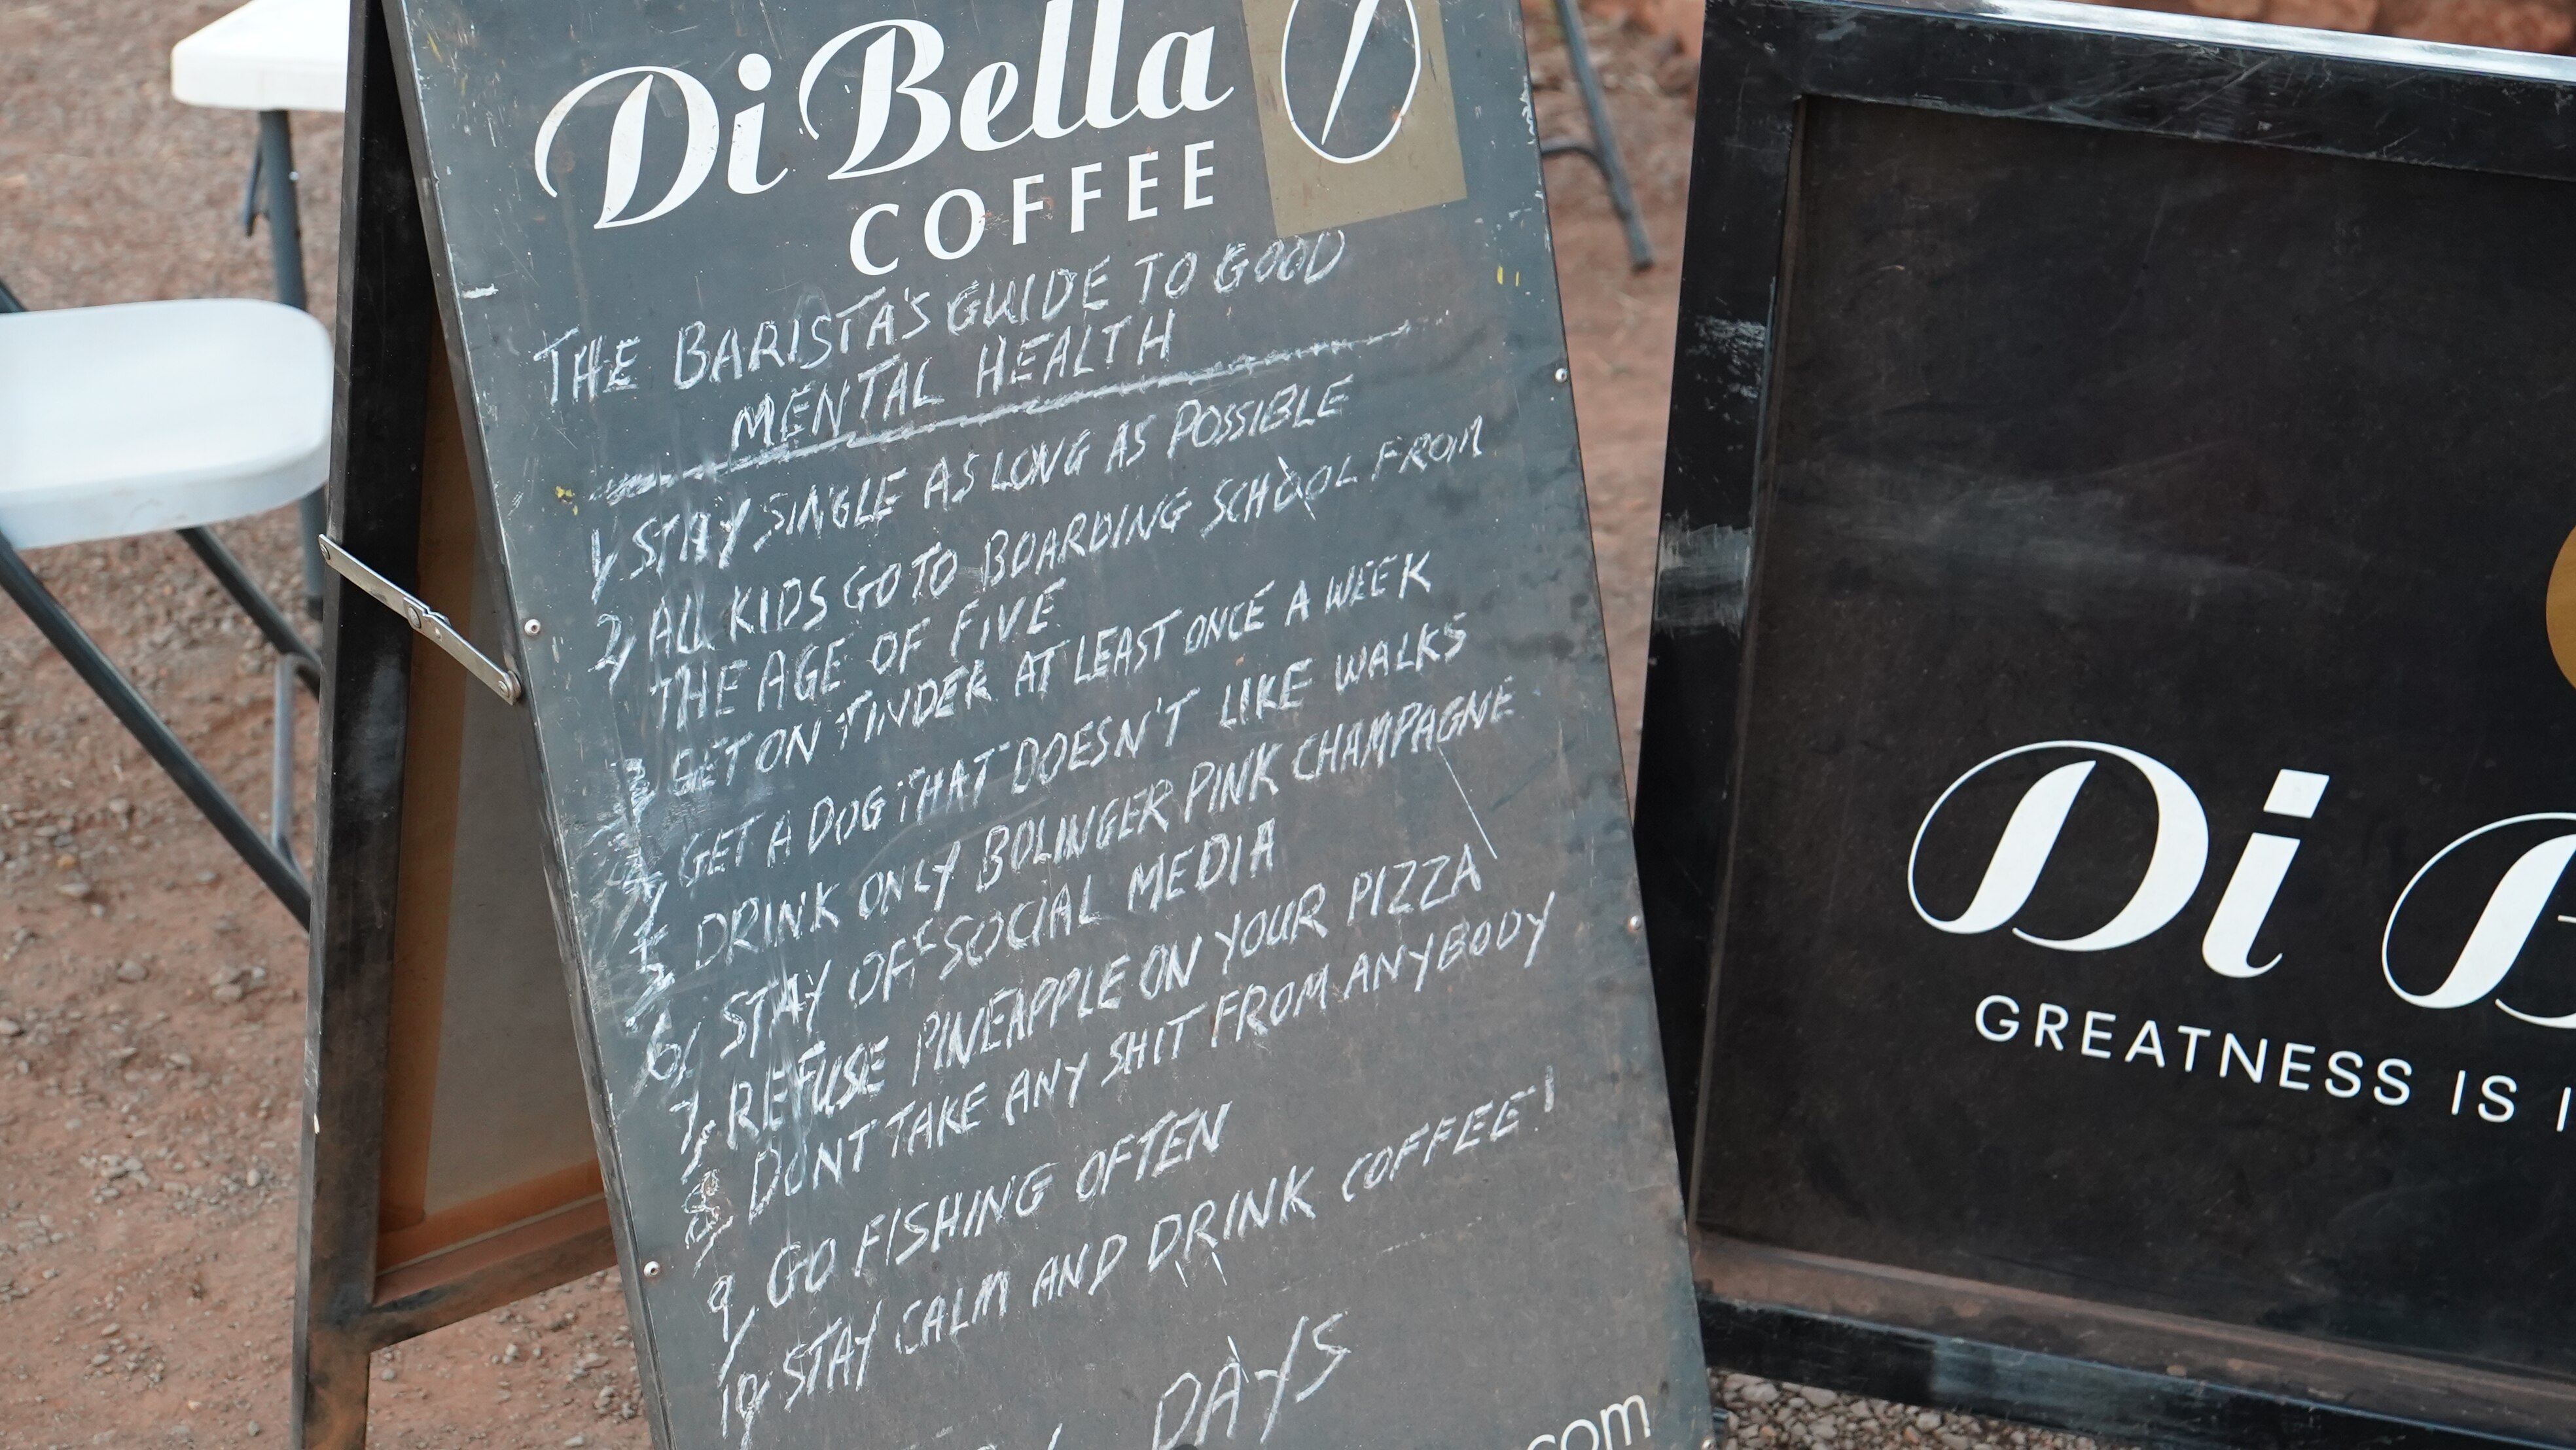 Di Bella
COFFEE
THE BARISTA'S GUIDE TO GOOD
MENTAL HEALTH
1, STAY SINGLE AS LONG AS POSSIBLE
2, ALL KIDS GO TO BOARDING SCHOOL FROM
THE AGE OF FIVE
3, GET ON TINDER AT LEAST ONCE A WEEK
4, GET A DOG THAT DOESN'T LIKE WALKS
5, DRINK ONLY BOLINGER PINK CHAMPAGNE
6, STAY OFF SOCIAL MEDIA
7, REFUSE PINEAPPLE ON YOUR PIZZA
8, DONT TAKE ANY SHIT FROM ANYBODY
9, GO FISHING OFTEN
10, STAY CALM AND DRINK COFFEE!
DAYS
.com
Di B
GREATNESS IS